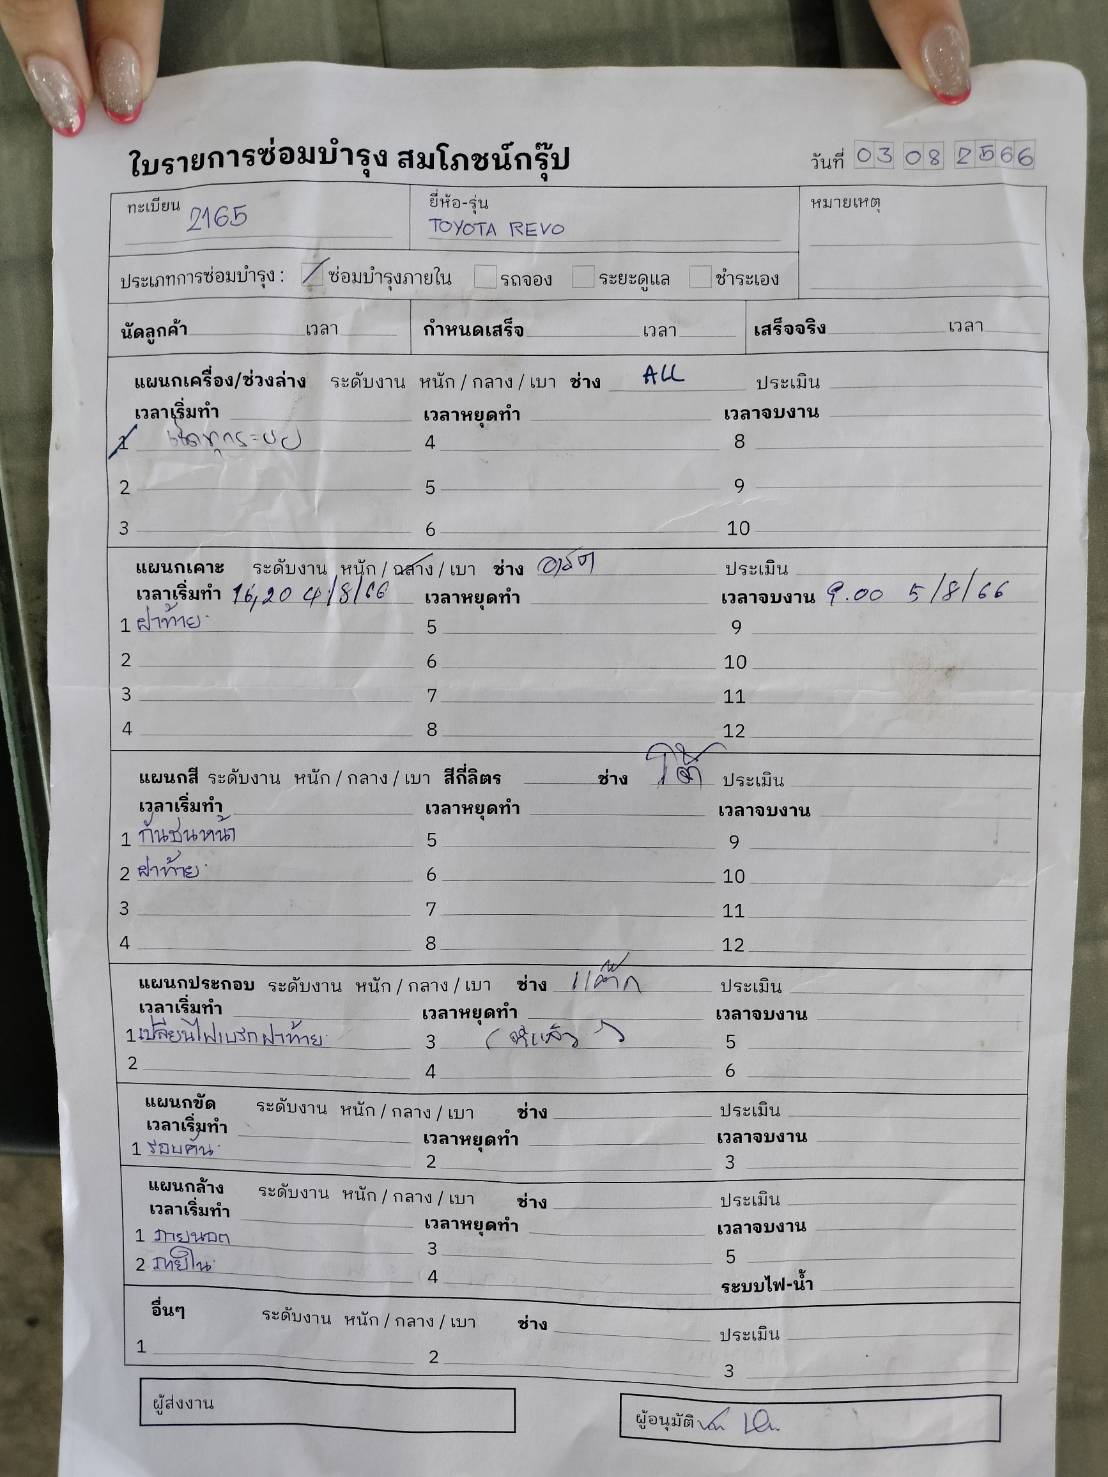 ใบรายการซ่อมบำรุง สมโภชน์กรุ๊ป วันที่ 03 08 2566
ทะเบียน 2165 ยี่ห้อ-รุ่น TOYOTA REVO หมายเหตุ
ประเภทการซ่อมบำรุง : ซ่อมบำรุงภายใน รถจอง ระยะดูแล ชำระเอง
นัดลูกค้า เวลา กำหนดเสร็จ เวลา เสร็จจริง เวลา
แผนกเครื่อง/ช่วงล่าง ระดับงาน หนัก / กลาง / เบา ช่าง ALL ประเมิน
เวลาเริ่มทำ เวลาหยุดทำ เวลาจบงาน
1 เช็คทุกระบบ 4 8
2 5 9
3 6 10
แผนกเคาะ ระดับงาน หนัก / กลาง / เบา ช่าง ประเมิน
เวลาเริ่มทำ 16,20 4/8/66 เวลาหยุดทำ เวลาจบงาน 9.00 5/8/66
1 ฝาท้าย 5 9
2 6 10
3 7 11
4 8 12
แผนกสี ระดับงาน หนัก / กลาง / เบา สีกี่ลิตร ช่าง ประเมิน
เวลาเริ่มทำ เวลาหยุดทำ เวลาจบงาน
1 กันชนหน้า 5 9
2 ฝาท้าย 6 10
3 7 11
4 8 12
แผนกประกอบ ระดับงาน หนัก / กลาง / เบา ช่าง ประเมิน
เวลาเริ่มทำ เวลาหยุดทำ เวลาจบงาน
1 เปลี่ยนไฟเบรกฝาท้าย 3 5
2 4 6
แผนกขัด ระดับงาน หนัก / กลาง / เบา ช่าง ประเมิน
เวลาเริ่มทำ เวลาหยุดทำ เวลาจบงาน
1 รอบคัน 2 3
แผนกล้าง ระดับงาน หนัก / กลาง / เบา ช่าง ประเมิน
เวลาเริ่มทำ เวลาหยุดทำ เวลาจบงาน
1 ภายนอก 3 5
2 ภายใน 4 ระบบไฟ-น้ำ
อื่นๆ ระดับงาน หนัก / กลาง / เบา ช่าง ประเมิน
1 2 3
ผู้ส่งงาน ผู้อนุมัติ